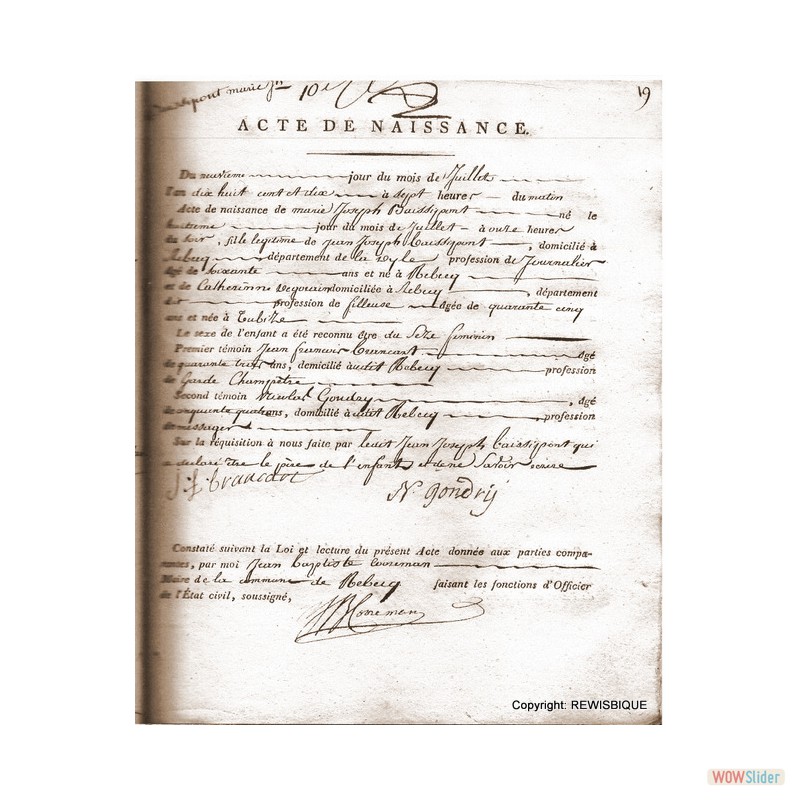 marie jh
19
ACTE DE NAISSANCE.
Du neuvieme jour du mois de Juillet
l'an dix huit cent et dix à sept heures du matin
Acte de naissance de marie Joseph Baissipont né le
huitieme jour du mois de Juillet à onze heures
du soir, fille legitime de Jean Joseph Baissipont, domicilié à
Rebecq département de la dyle profession de Journalier
âgé de soixante ans et né à Rebecq
et de Catherinne domiciliée à Rebecq, département
profession de fileuse âgée de quarante cinq
ans et née à Tubize
Le sexe de l'enfant a été reconnu être du Sexe feminin
Premier témoin Jean francois Brancart âgé
de quarante trois ans, domicilié audit Rebecq profession
de Garde Champêtre
Second témoin Nicolas Goudry, âgé
de cinquante quatre ans, domicilié à audit Rebecq, profession
de messager
Sur la réquisition à nous faite par ledit Jean Joseph Baissipont qui
a declaré être le père de l'enfant et de ne Savoir ecrire
J. f. brancart N. gondrij
Constaté suivant la Loi et lecture du présent Acte donnée aux parties compa-
rantes, par moi Jean baptiste
Maire de la commune de Rebecq faisant les fonctions d'Officier
de l'État civil, soussigné,
Copyright: REWISBIQUE
WOWSlider